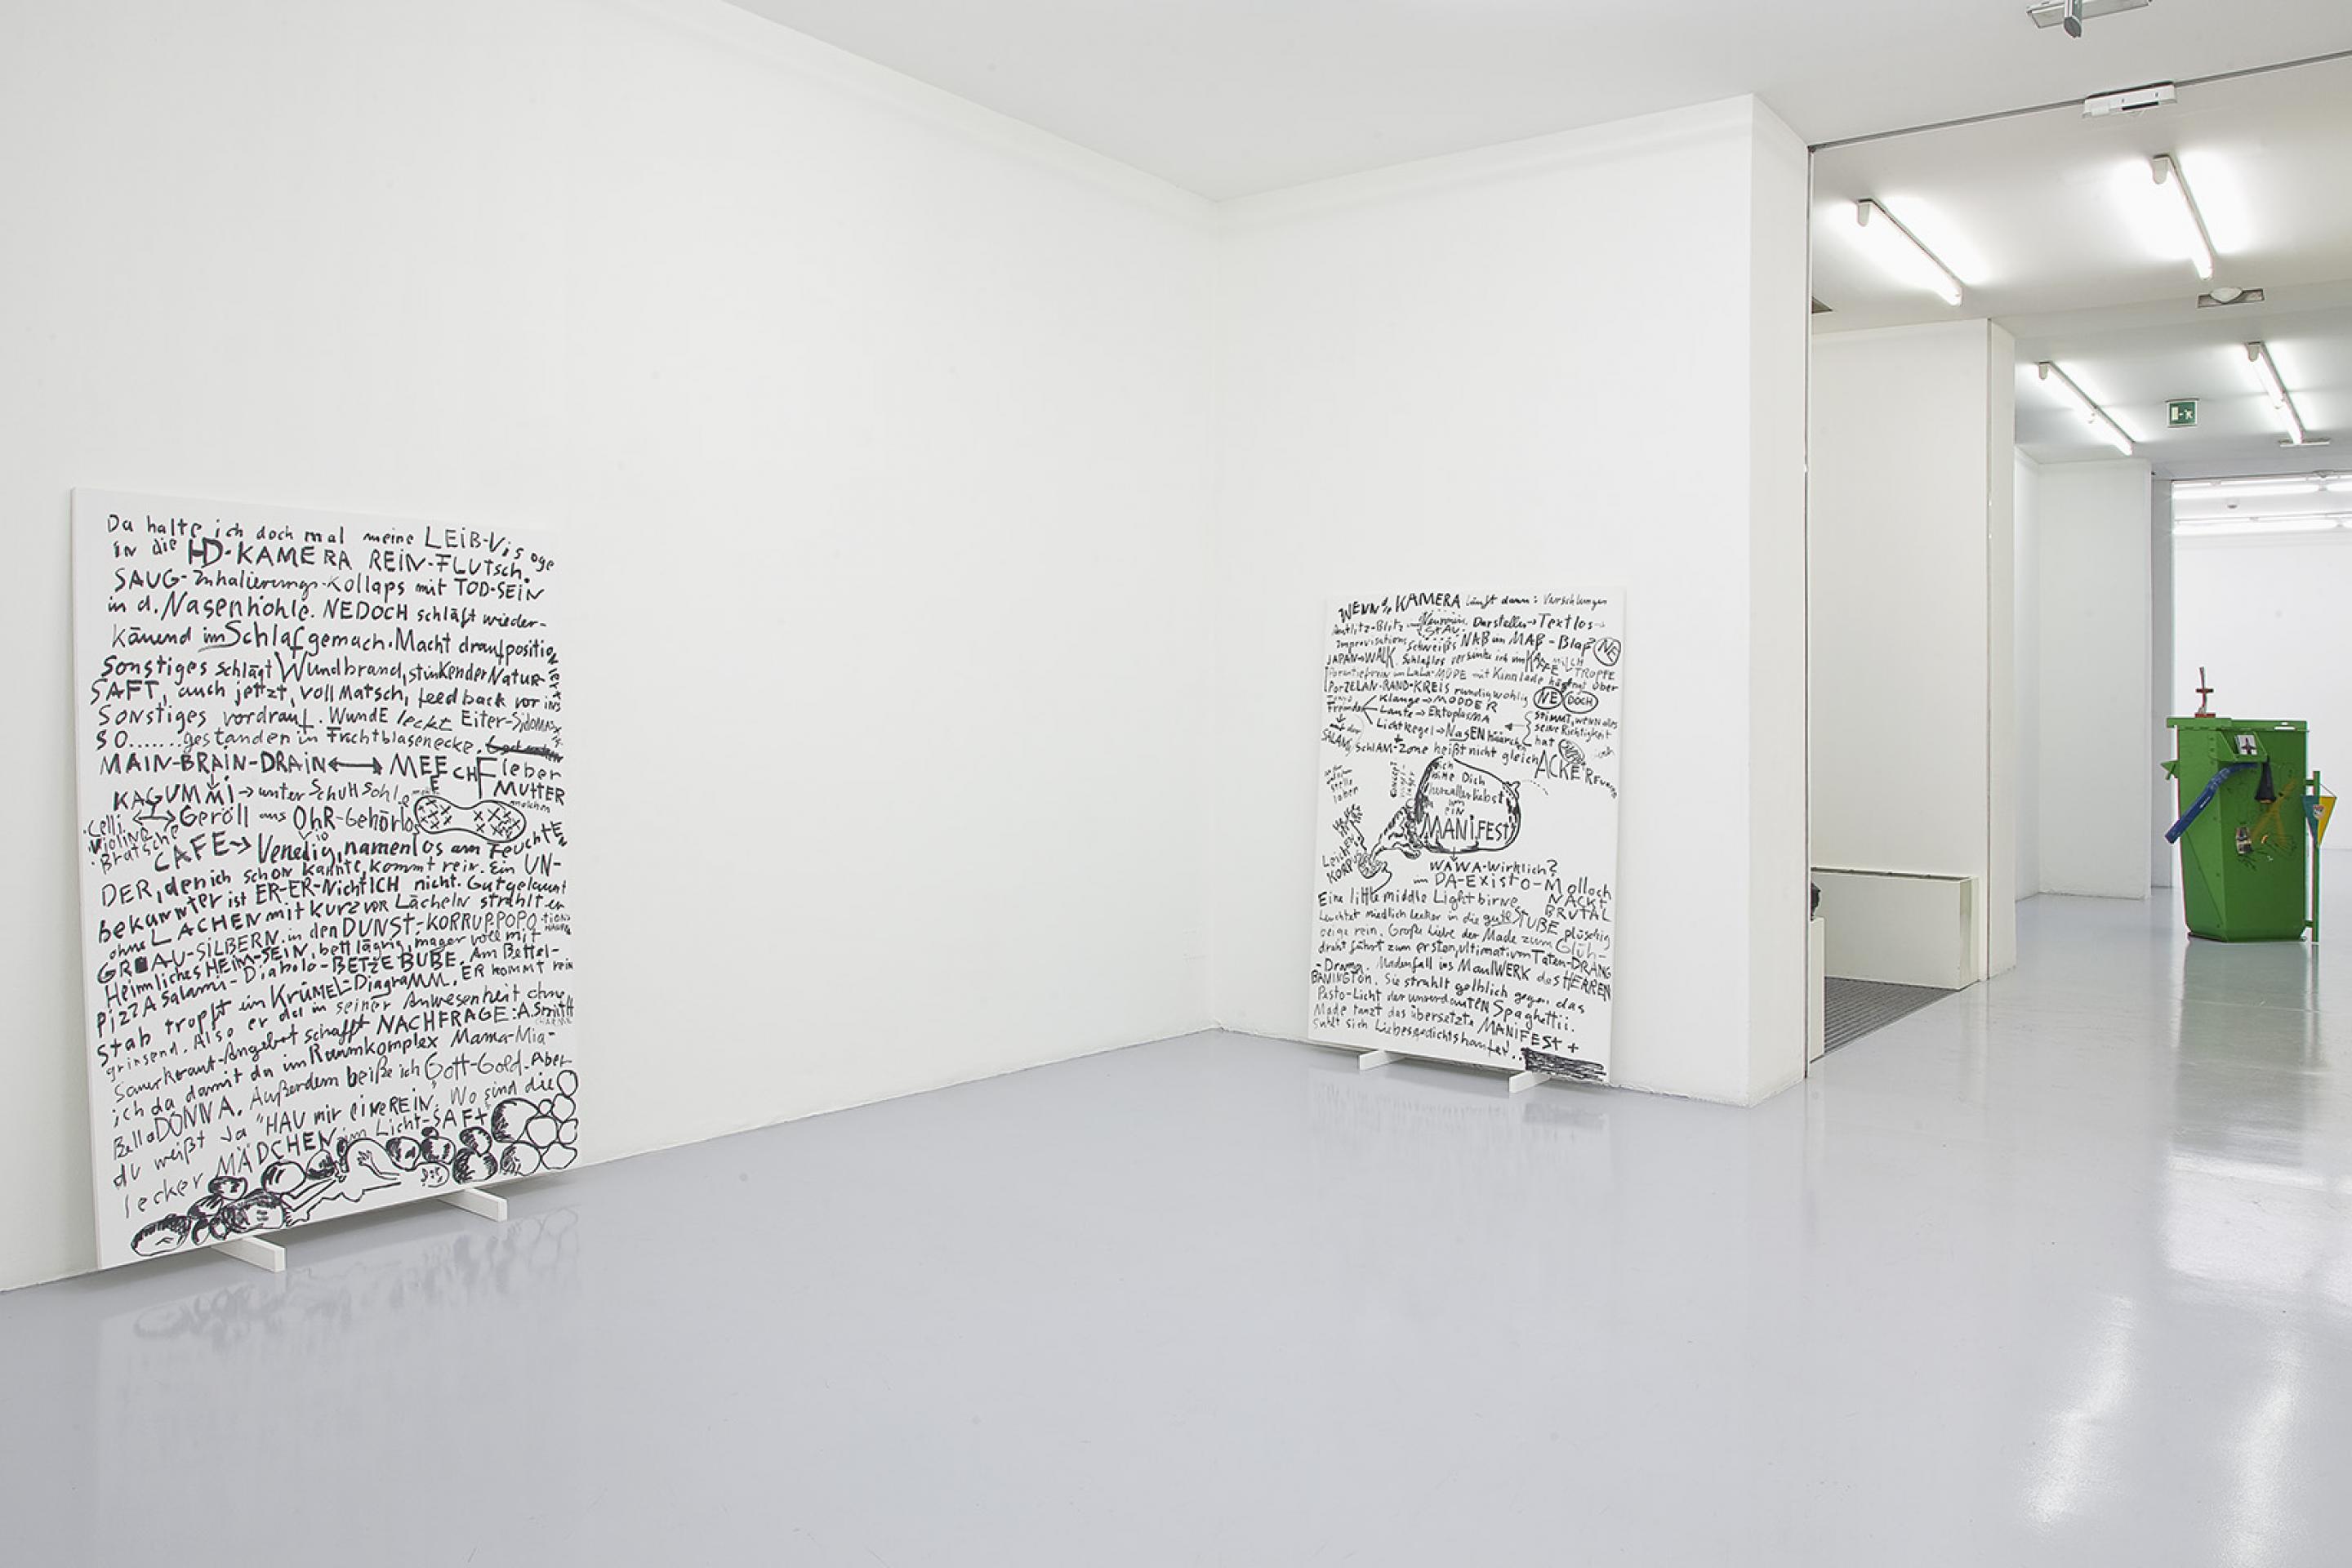 Da halte ich doch mal meine LEiB-Visoge
in die HD-KAMERA REiN-FLUtsch.
SAUG-Inhalierungs-Kollaps mit TOD-SEiN
in d. Nasenhöhle. NEDOCH schläft wieder-
käuend im Schlafgemach. Macht drauf position
Sonstiges schlägt Wundbrand, stinkender Natur-
SAFT, auch jetzt, voll Matsch, feedback vor ins
Sonstiges vordrauf. WundE leckt Eiter-
SO.......gestanden in Fruchtblasenecke.
MAIN-BRAIN-DRAiN ↔ MEE ECH Fleber
MUTTER
KAGUMMi → unter SchuHsohle
Celli. Violine Bratsche
Geröll aus OhR-Gehörlos
CAFE → Venedig, namenlos am Feuchten
DER, den ich schon kannte, kommt rein. Ein UN-
bekannter ist ER-ER-NichtICH nicht. Gutgelaunt
ohne LACHEN mit kurz vor Lächeln strahlt er
GRAU-SiLBERN in den DUNST-KORRUP.POPO
Heimliches HEiM-SEiN, bettlägrig, mager voll mit
PiZZA Salami-Diabolo-BETZEBUBE. Am Bettel-
Stab tropft ein KRÜMEL-DiagraMM. ER kommt rein
grinsend. Also er da in seiner Anwesenheit ohne
Sauerkraut-Angebot schafft NACHFRAGE: A.Smith
ich da damit da im Raumkomplex Mama-Mia-
BellaDONNA. Außerdem beiße ich Gott-Gold. Aber
du weißt Ja "HAU mir eineREiN. Wo sind die
lecker MÄDCHEN im Licht-SAFT
WENN KAMERA läuft dann: Verschlungen
Antlitz-Blitz Darsteller → Textlos
Improvisations Schweiß NAB im MAß-Blaf NE
JAPAN WALK. Schlaflos versinke ich im KAFFE MiLCH TROPPE
LaLa-MODE mit Kinnlade hängt über
PorZELAN-RAND-KREiS rundigwohlig NE DOCH
Fremde
Klänge → MODDER
Laute → EktoplasMA
Lichtkegel → NasENhäärchen
STiMMT, wenn alles
seine Richtigkeit
hat
SchlAM-Zone heißt nicht gleich ACKE
LeichEN
KORPUS
ich
bitte Dich
herzallerliebst
um
EiN
MANiFEST
WAWA-Wirklich?
im DA-EXiSTO-Molloch
NACKT
BRUTAL
Eine little middle Lightbirne
Leuchtet niedlich lecker in die gute STUBE plüschig
beige rein. Große Liebe der Made zum Glüh-
draht führt zum ersten, ultimativem Taten-DRANG
-Drama. Madenfall ins MaulWERK des HERREN
BANINGTON. Sie strahlt gelblich gegen das
Pesto-Licht der unverdauTEN Spaghettii.
Made tanzt das übersetzte MANiFEST +
suhlt sich Liebesgedichtshaufen...